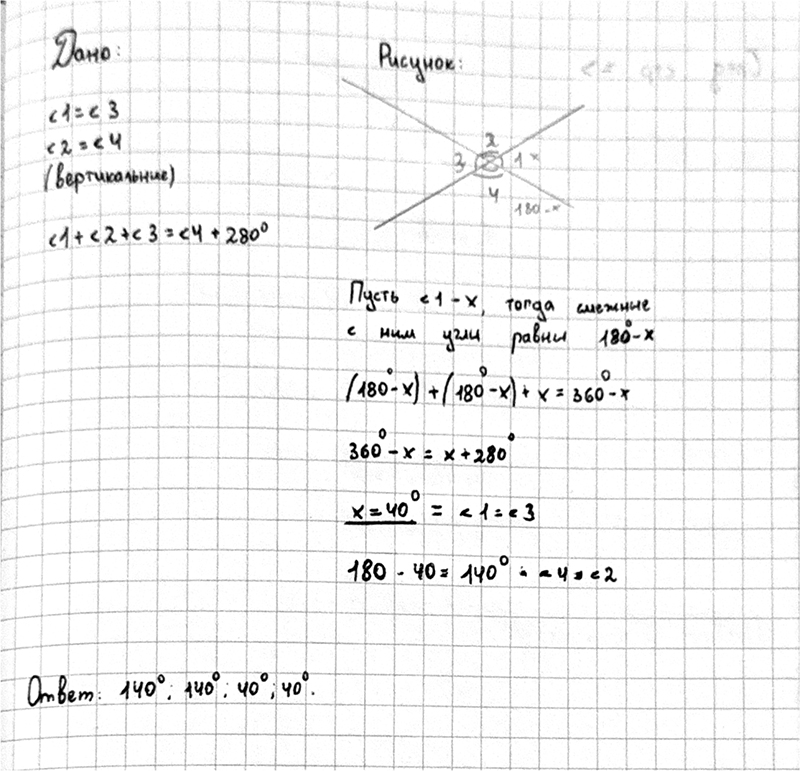 Дано:
Рисунок:
<1=<3
<2=<4
(вертикальные)
<1+<2+<3=<4+280°
2
3
1 x
4
180-x
Пусть <1-x, тогда смежные
с ним угли равны 180°-x
(180°-x)+(180°-x)+x=360°-x
360°-x=x+280°
x=40° = <1=<3
180-40=140° - <4=<2
Ответ: 140°; 140°; 40°; 40°.